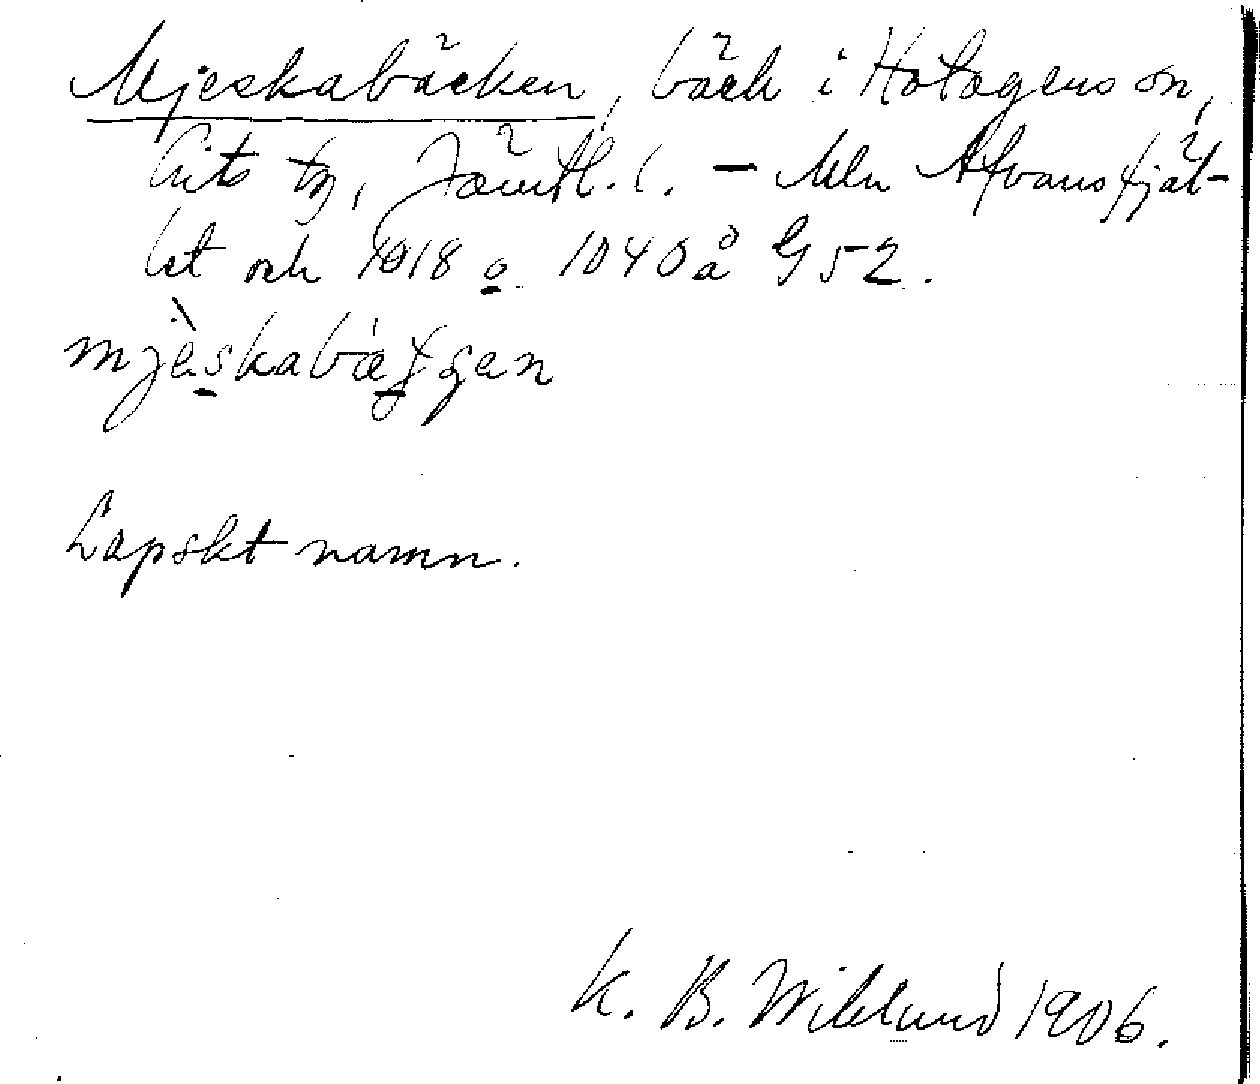 Mjeskabäcken, bäck i Hotagens sn,
Lits tg, Jämtl. l. — Mln Afvansfjäl-
let och 1018 o 1040 å G 52.
mjèskabæƷgen
Lapskt namn.
K. B. Wiklund 1906.